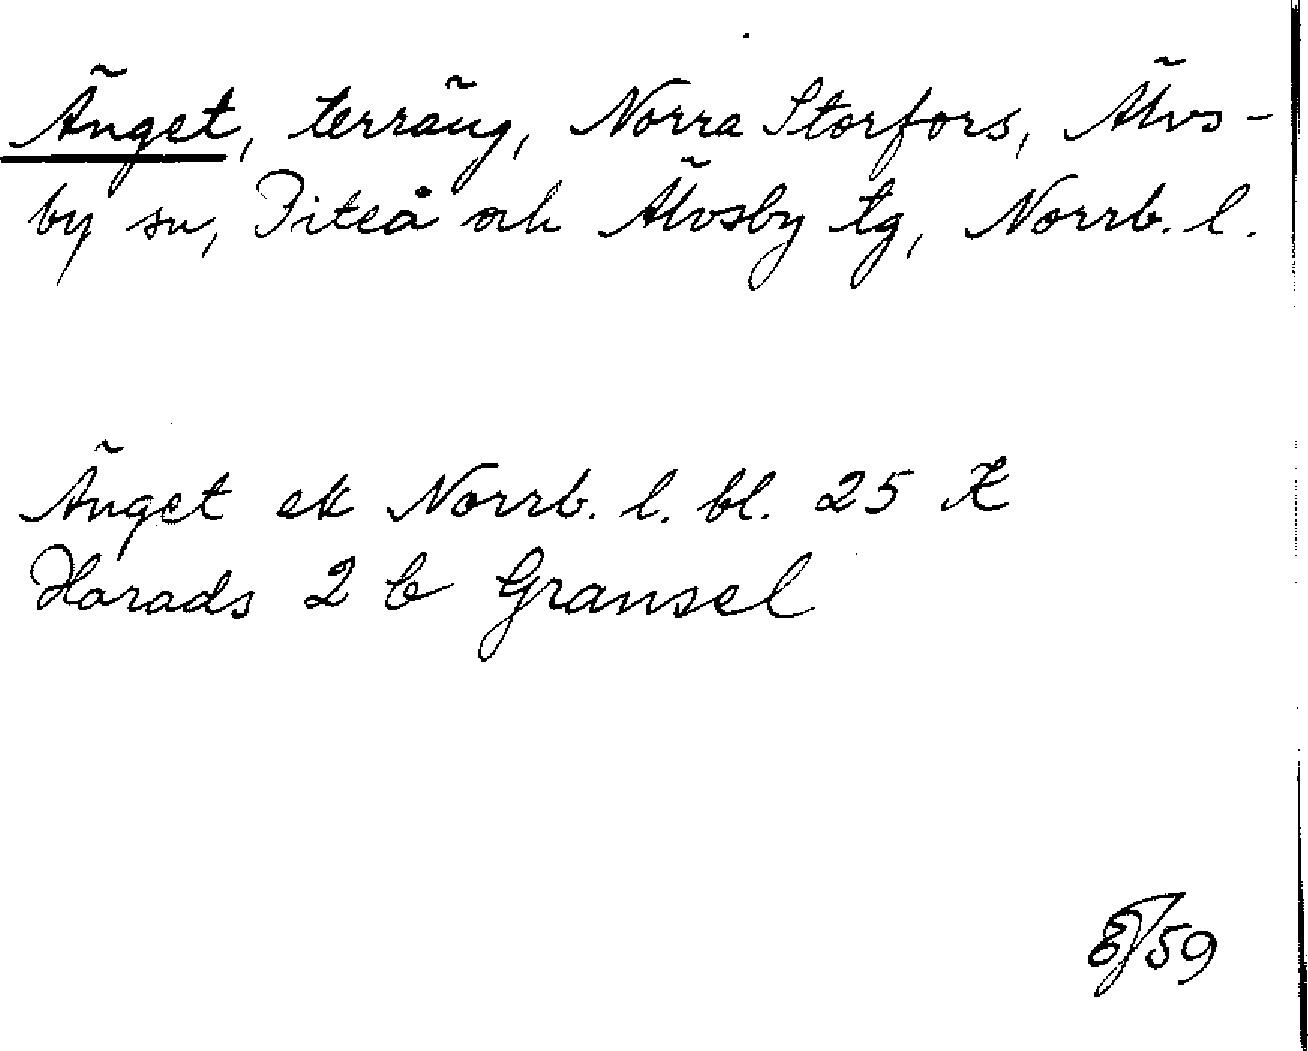 Änget, terräng, Norra Storfors, Älvs-
by sn, Piteå och Älvsby tg, Norrb. l.
Änget ek Norrb. l. bl. 25 K
Harads 2 b Gransel
59